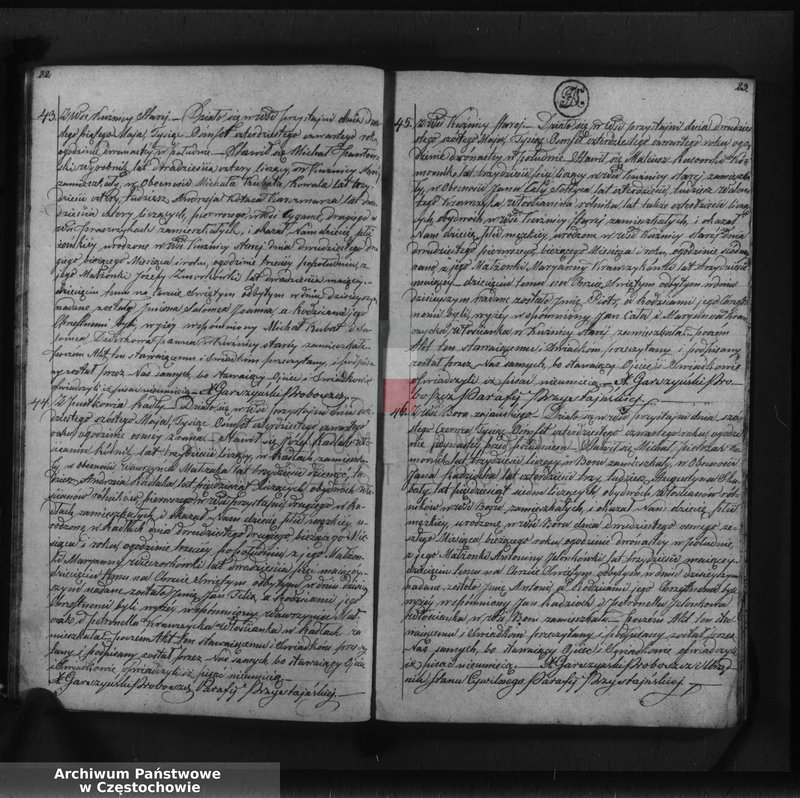 22.
43. Z Wsi Kuźnicy Starej — Działo się w Wsi Przystajni dnia
Maja Tysiąc Ośmset czterdziestego czwartego
godzinie dwunastey w południe — Stawił się Michał
lat dwadzieścia cztery liczący w Kuźnicy
zamieszkały, w Obecności Michała Kubata lat
tudzież Andrzeja Kotasa Karczmarza lat
dzieścia cztery liczących, pierwszego z Wsi drugiego z
Wsi zamieszkałych, i okazał Nam dziecię płci
żeńskiej urodzone w Wsi Kuźnicy Starej dnia dwudziestego
giego bieżącego Miesiąca i roku, o godzinie trzeciej popołudniu, z
jego Małżonki Józefy lat dwadzieścia mającej
dziecięciu temu na Chrzcie Świętym odbytym w dniu dzisiejszym
nadane zostały Imiona Salomea Joanna, a Rodzicami jego
Chrzestnemi byli, wyżej wspomniony Michał Kubat i
w Kuźnicy Starej zamieszkali
poczem Akt ten stawaiącemu i Świadkom przeczytany, i podpisa
ny został przez Nas samych, bo stawaiący Ojciec i Świadkowie
oświadczyli iż pisać nieumieją — X Garszyński Proboszcz
44. Działo się w Wsi Przystajni dnia
dziestego szóstego Maja, Tysiąc Ośmset czterdziestego czwartego
roku o godzinie osmey zrana — Stawił się
lat trzydzieści liczący, w Kadłach zamieszka
ły, w obecności Wawrzyńca lat trzydzieści dziewięć tu
dzież Andrzeja Kadlaka lat pięćdziesiąt liczących, obydwóch
pierwszego w Wsi Przystajni drugiego w Ka
dłach zamieszkałych i okazał Nam dziecię płci męzkiej u
rodzone w Kadłach dnia dwudziestego drugiego bieżącego Mie
siąca i roku, o godzinie trzeciej popołudniu, z jego Małżon
ki Maryanny lat dwadzieścia pięć mającej
dziecięciu temu na Chrzcie Świętym odbytym w dniu dzisiej
szym nadane zostało Imię Jan Felix, a Rodzicami jego
Chrzestnemi byli wyżej wspomniony Wawrzyniec
i Petronella Krawczyka Włościanka w Kadłach za
mieszkała, poczem Akt ten stawaiącemu i Świadkom przeczy
tany i podpisany został przez Nas samych bo stawaiący Ojciec
i Świadkowie oświadczyli iż pisać nieumieją
X Garszyński Proboszcz Parafij Przystajńskiej
23.
45. Z Wsi Kuźnicy Starej — Działo się w Wsi Przystajni dnia dwudzie
stego szóstego Maja, Tysiąc Ośmset czterdziestego czwartego roku o go
dzinie dwunastey w południe — Stawił się Mateusz Ko
mornik lat trzydzieści liczący w Wsi Kuźnicy Starej zamieszka
ły, w Obecności Jana Cały Sołtysa, lat czterdzieści, tudzież Walen
tego Krawczyka Włościanina rolnika lat także czterdzieści liczą
cych, obydwóch w Wsi Kuźnicy Starej zamieszkałych, i okazał
Nam dziecię płci męzkiej urodzone w Wsi Kuźnicy Starej dnia
dwudziestego pierwszego bieżącego Miesiąca i roku, o godzinie siódmej
zrana z jego Małżonki Maryanny Krawczykonki lat trzydzieści
mającej — dziecięciu temu na Chrzcie Świętym odbytym w dniu
dzisiejszym nadane zostało Imię Piotr, a Rodzicami jego Chrzest
nemi byli, wyżej wspomniony Jan Cała i Maryanna Kraw
czycka Włościanka w Kuźnicy Starej zamieszkała — poczem
Akt ten stawaiącemu i Świadkom przeczytany i podpisany
został przez Nas samych, bo stawaiący Ojciec i Świadkowie
oświadczyli iż pisać nieumieją — X Garszyński Pro
boszcz Parafij Przystajńskiej
46. Z Wsi Boru — Działo się w Wsi Przystajni dnia
Czerwca Tysiąc Ośmset czterdziestego czwartego roku o godzi
nie przed południem — Stawił się Michał Pietrzak Ko
mornik lat trzydzieści liczący w Boru zamieszkały, w Obecności
Jana lat czterdzieści trzy, tudzież Augustyna
lat pięćdziesiąt siedm liczących, obydwóch Włościanów rol
ników w Wsi Boru zamieszkałych, i okazał Nam dziecię płci
męzkiej, urodzone w Wsi Boru dnia dwudziestego osmego ze
szłego Miesiąca bieżącego roku, o godzinie dwunastey w południe,
z jego Małżonki Antoniny lat trzydzieści mającej
dziecięciu temu na Chrzcie Świętym odbytym w dniu dzisiejszym
nadane zostało Imię Antoni, a Rodzicami jego Chrzestnemi byli
wyżej wspomniony Jan i Petronella
Włościanka w Wsi Boru zamieszkała — Poczem Akt ten sta
waiącemu i Świadkom przeczytany i podpisany został przez
Nas samych, bo stawaiący Ojciec i Świadkowie oświadczyli
iż pisać nieumieją — X Garszyński Proboszcz Urzęd
nik Stanu Cywilnego Parafij Przystajńskiej
Archiwum Państwowe
w Częstochowie